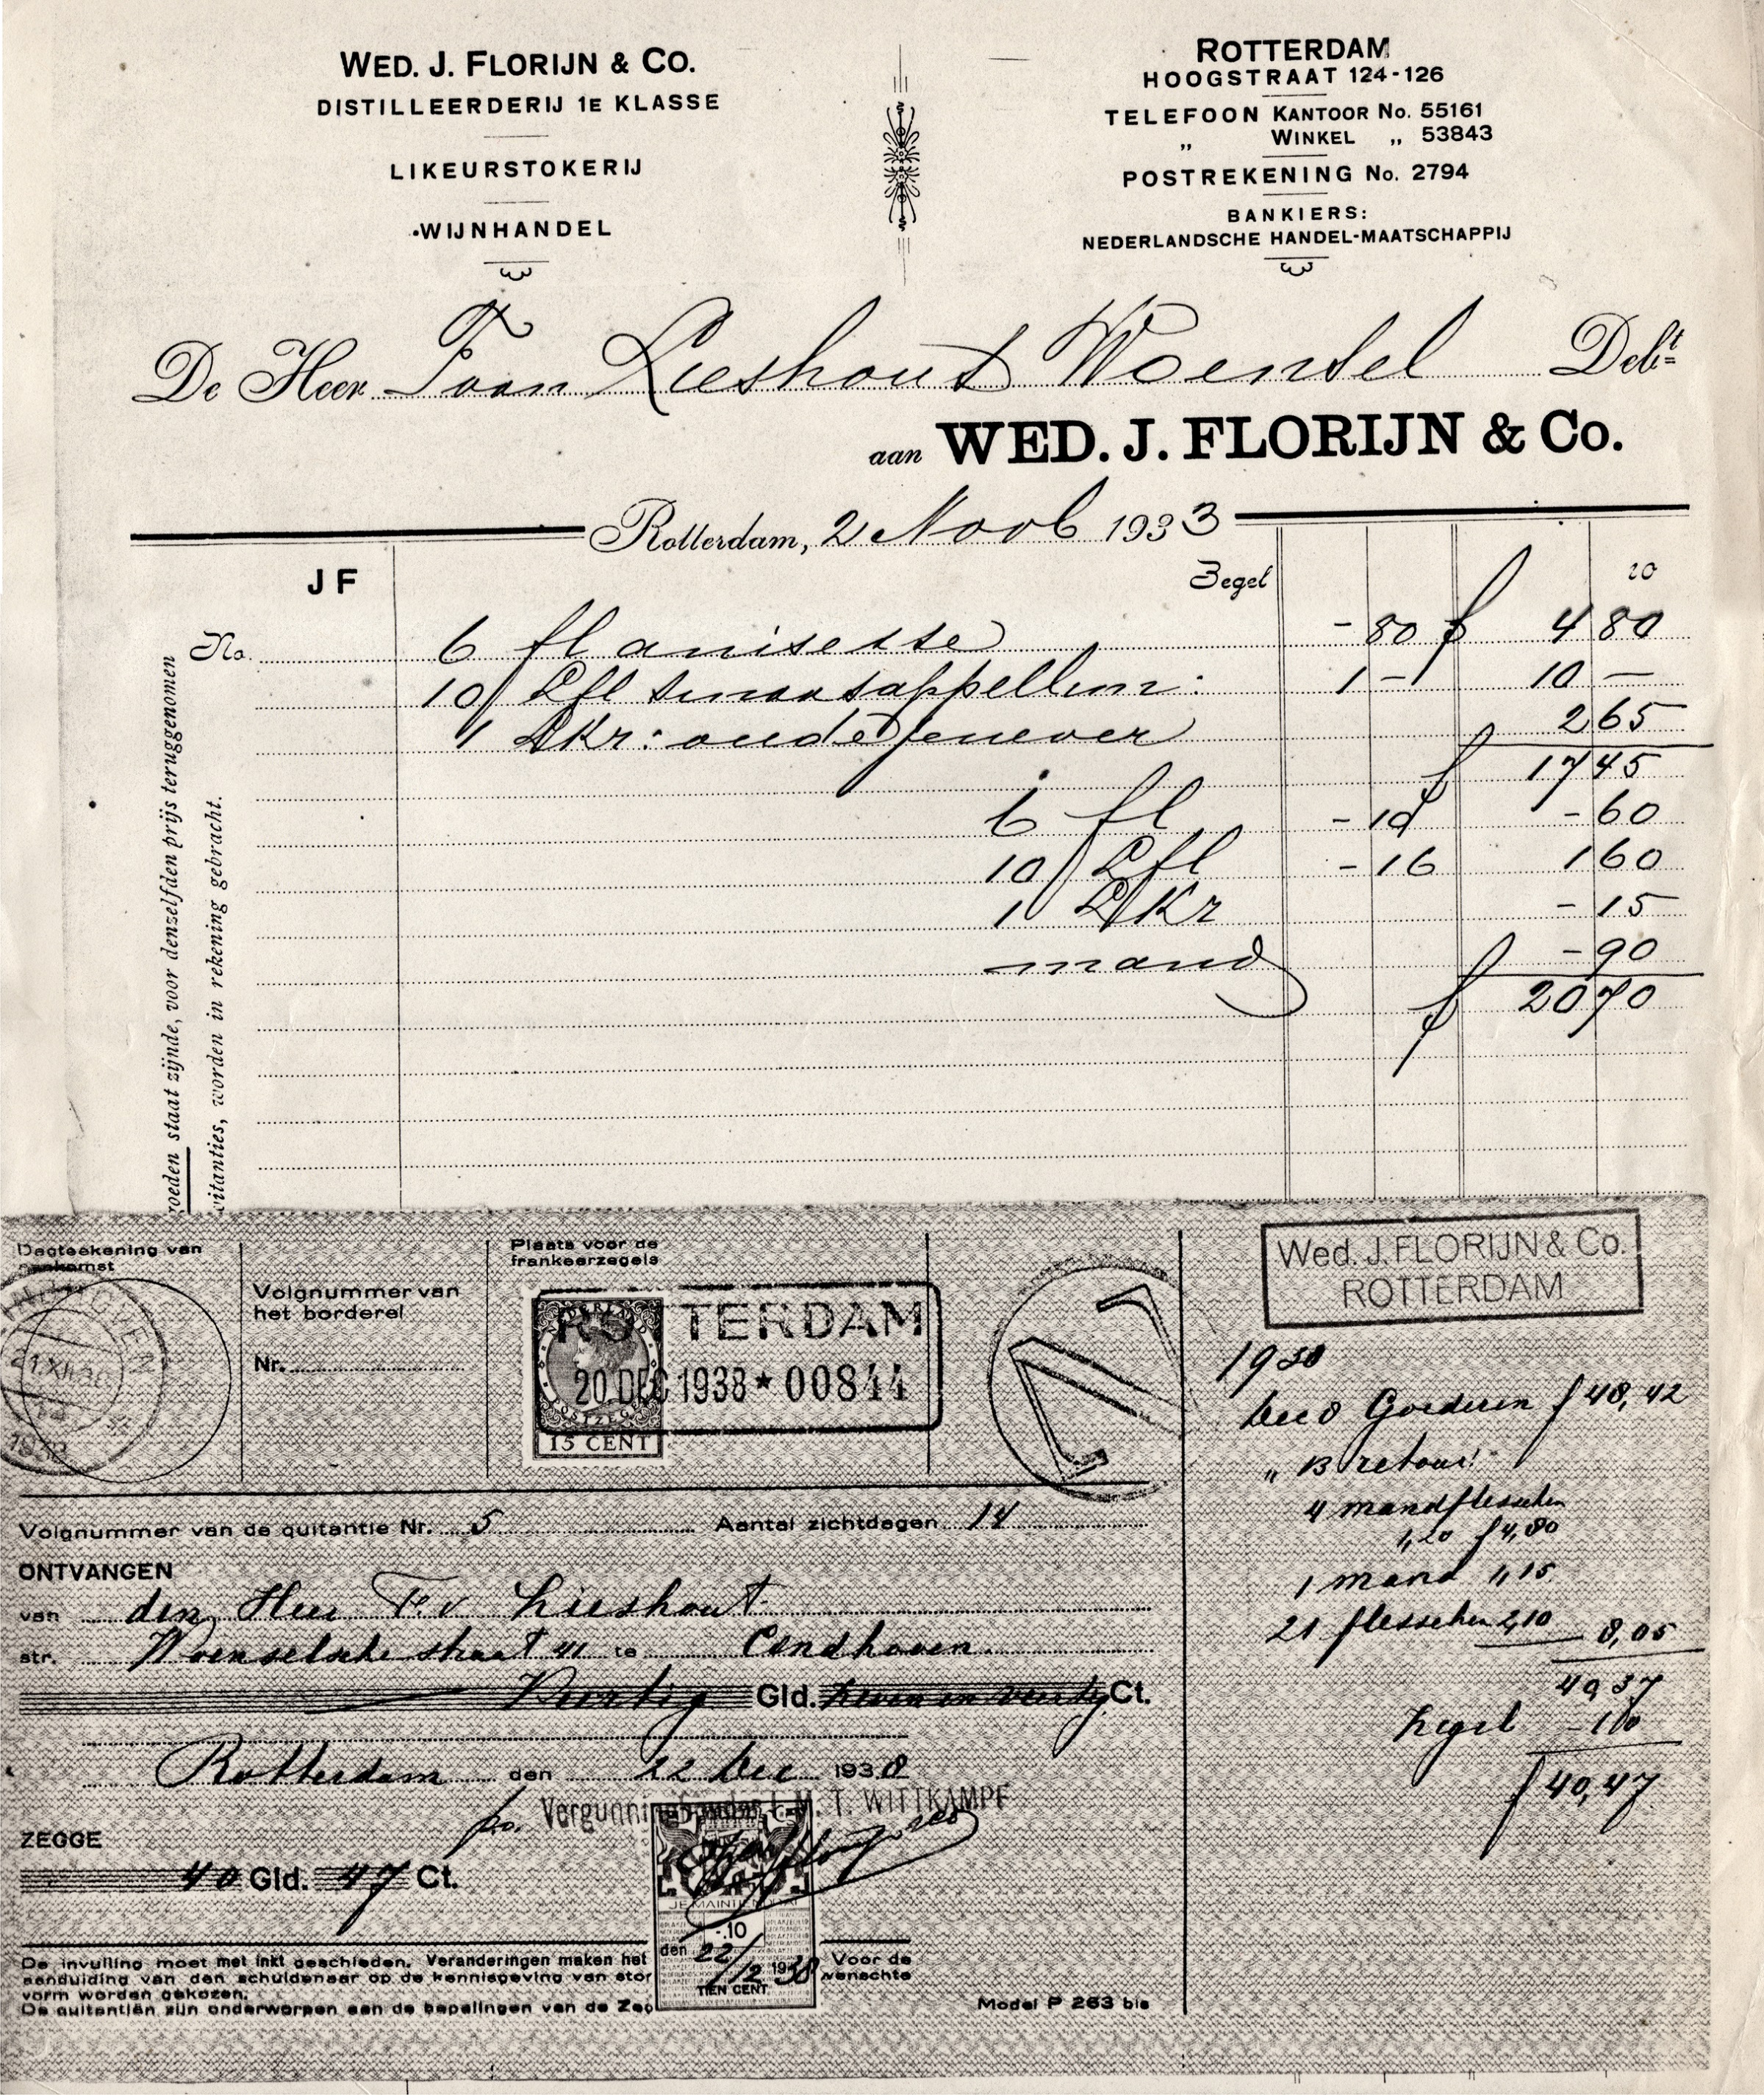 WED. J. FLORIJN & CO.
DISTILLEERDERIJ 1E KLASSE
LIKEURSTOKERIJ
WIJNHANDEL
ROTTERDAM
HOOGSTRAAT 124-126
TELEFOON KANTOOR No. 55161
„ WINKEL „ 53843
POSTREKENING No. 2794
BANKIERS:
NEDERLANDSCHE HANDEL-MAATSCHAPPIJ
De Heer Toon Lieshout Woensel Debt
aan WED. J. FLORIJN & Co.
Rotterdam, 2 Novb 1933
J F Zegel 10
No. 6 fl anisette - 80 f 4 80
10/ Lfl sinaasappellim: 1 - 10 -
1 LKr: oude jenever 2 65
f 17 45
6 fl - 10 - 60
10/ Lfl - 16 1 60
1 LKr - 15
mand - 90
f 20 70
goeden staat zijnde, voor denzelfden prijs teruggenomen
uitanties, worden in rekening gebracht.
Dagteekening van
aankomst
Volgnummer van
het borderel
Nr.
Plaats voor de
frankeerzegels
ROTTERDAM
20 DEC 1938 * 00844
15 CENT
Wed. J. FLORIJN & Co.
ROTTERDAM
Dec 8 Goederen f 48,42
„ 13 retour:
4 mandflesschen
1,20 f 4,80
1 mand 1,15
21 flesschen 2,10 8,05
40 37
Zegel - 10
f 40,47
Volgnummer van de quitantie Nr. 5 Aantal zichtdagen 14
ONTVANGEN
van den Heer T. v Lieshout
str. Woenselsche straat 41 te Eindhoven
Veertig Gld. zeven en veertig Ct.
Rotterdam den 22 Dec 1938
po. Vergunninghouder T. M. T. WITTKAMPF
ZEGGE
40 Gld. 47 Ct.
JE MAINTIENDRAI
-.10
den 22/12 1938
TIEN CENT
De invulling moet met inkt geschieden. Veranderingen maken het
aanduiding van den schuldenaar op de kennisgeving van stor
vorm worden gekozen.
De quitantiën zijn onderworpen aan de bepalingen van de Zeg
Voor de
wenschte
Model P 263 bis